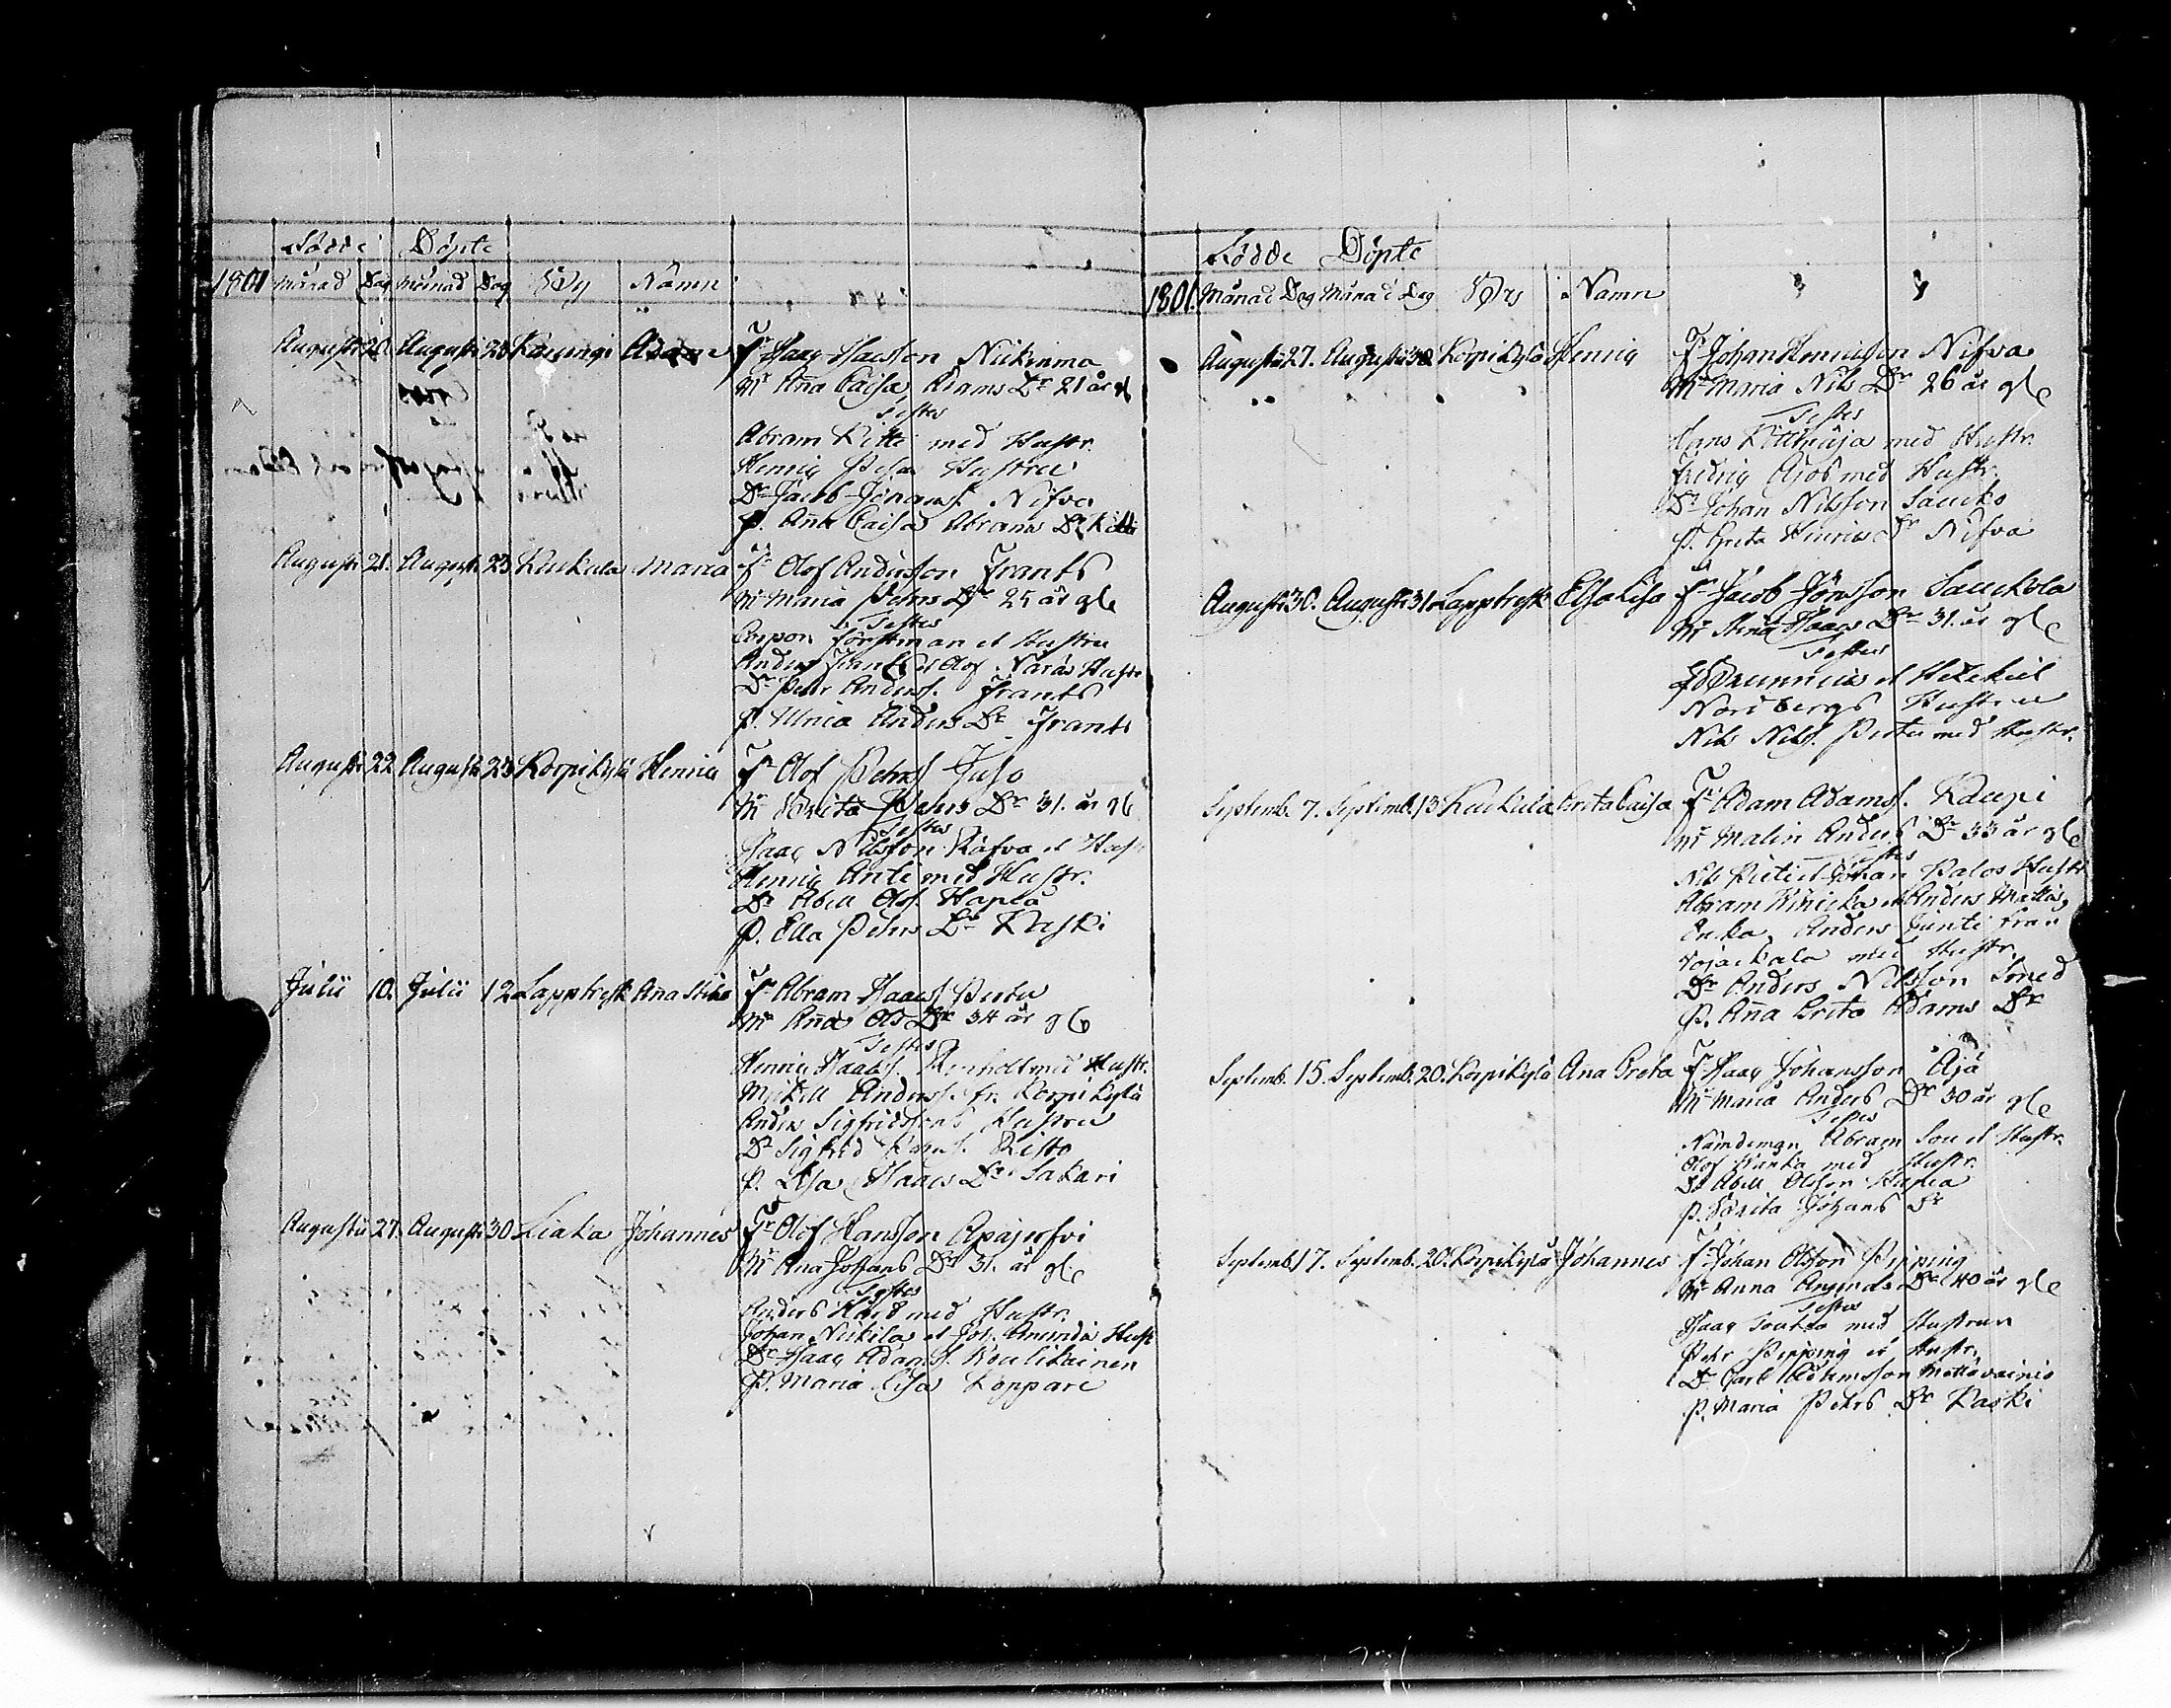 Födde Döpte
1801 Månad Dag Månad Dag By Namn
Augusti 20. Augusti 23 Karungi Adam Fr Isaac Isacsson Niskinma
Mr Aña Caisa Adams Dr 21 år gl
Testes
Abram Kitti med Hustr.
Henric Pesa Hustru
Dr Jacob Jönanss. Nifva
P. Aña Caisa Abrams Dr Kitti
Augusti 21. Augusti 23 Kuckula Maria Fr Olof Andersson Frants
Mr Maria Pehrs Dr 25 år gle
Testes
Corpor. Förstman et Hustru
Anders Frants et Olof Närä Hustr
Dr Pehr Anderss. Frants
P. Ulrica Anders Dr Frants
Augusti 22 Augusti 23 Korpikylä Henric Fr Olof Pehrss Juso
Mr Brita Pehrs Dr 31. år gl
Testes
Isaac Nilsson Räfva et Hust
Henric Anti med Hustr.
Dr Abell Olofs. Hapla
P. Ella Pehrs Dr Kaski
Julii 10. Julii 12 Lappträsk Aña Stina Fr Abram Isaacss Pertu
Mr Aña Ols Dr 34 år gl
Testes
Henric Isaacss. med Hustr.
Mickell Anderss. fr. Korpikylä
Anders Sigfridssons Hustru
Dr Sigfrid Risto
P. Lisa Isaacs Dr Sakari
Augusti 27. Augusti 30 Liaka Johannes Fr Olof Hansson Apajerfvi
Mr Ana Johans Dr 31. år gle
Testes
Anders Hard med Hustr.
Johan Niskila et Joh. Anundi Hust
Dr Isaac Adamss. Koulikainen
P. Maria Lisa Koppare
Födde Döpte
1801. Månad Dag Månad Dag By Namn
Augusti 27. Augusti 30 Korpikylä Henric Fr Johan Henricsson Nifva
Mr Maria Nils Dr 26 år gle
Testes
Hans Kitthuaja med Hustr.
Fredric Ajos med Hustr.
Dr Johan Nilsson Saucko
P. Greta Henrics Dr Nifva
Augusti 30. Augusti 31 Lappträsk Elsa Lisa Fr Jacob Jönsson Sauckola
Mr Stina Isaacs Dr 31. år gle
Testes
Brunnius et Hezekiel
Nordbergs Hustru
Nils Nilss. Pertu med Hustr.
Septemb. 7. Septemb. 13 Kuckula Greta Caisa Fr Adam Adamss. Kaupi
Mr Malin Anders Dr 33 år gle
Testes
Nils et Johan Palos Hustr
Abram Winicka et Anders Matts,
Erika, Anders Junti från
Vojackala med Hustr.
Dr Anders Nilsson Smed
P. Aña Greta Adams Dr
Septemb. 15. Septemb. 20. Korpikylä Ana Greta Fr Isaac Johansson Äjä
Mr Maria Anders Dr 30 år gle
Testes
Nämdeman Abram Son et Hustr.
Olof Wanka med Hustr.
Dr Abell Olsson Hapla
P. Brita Johans Dr
Septemb. 17. Septemb. 20. Korpikylä Johannes Fr Johan Olsson Pipping
Mr Anna Anunds Dr 40 år gle
Testes
Isaac Toutta med Hustrun
Pehr Pipping et Hustr.
Dr Carl Adamsson Mattavainio
P. Maria Pehrs Dr Kaski